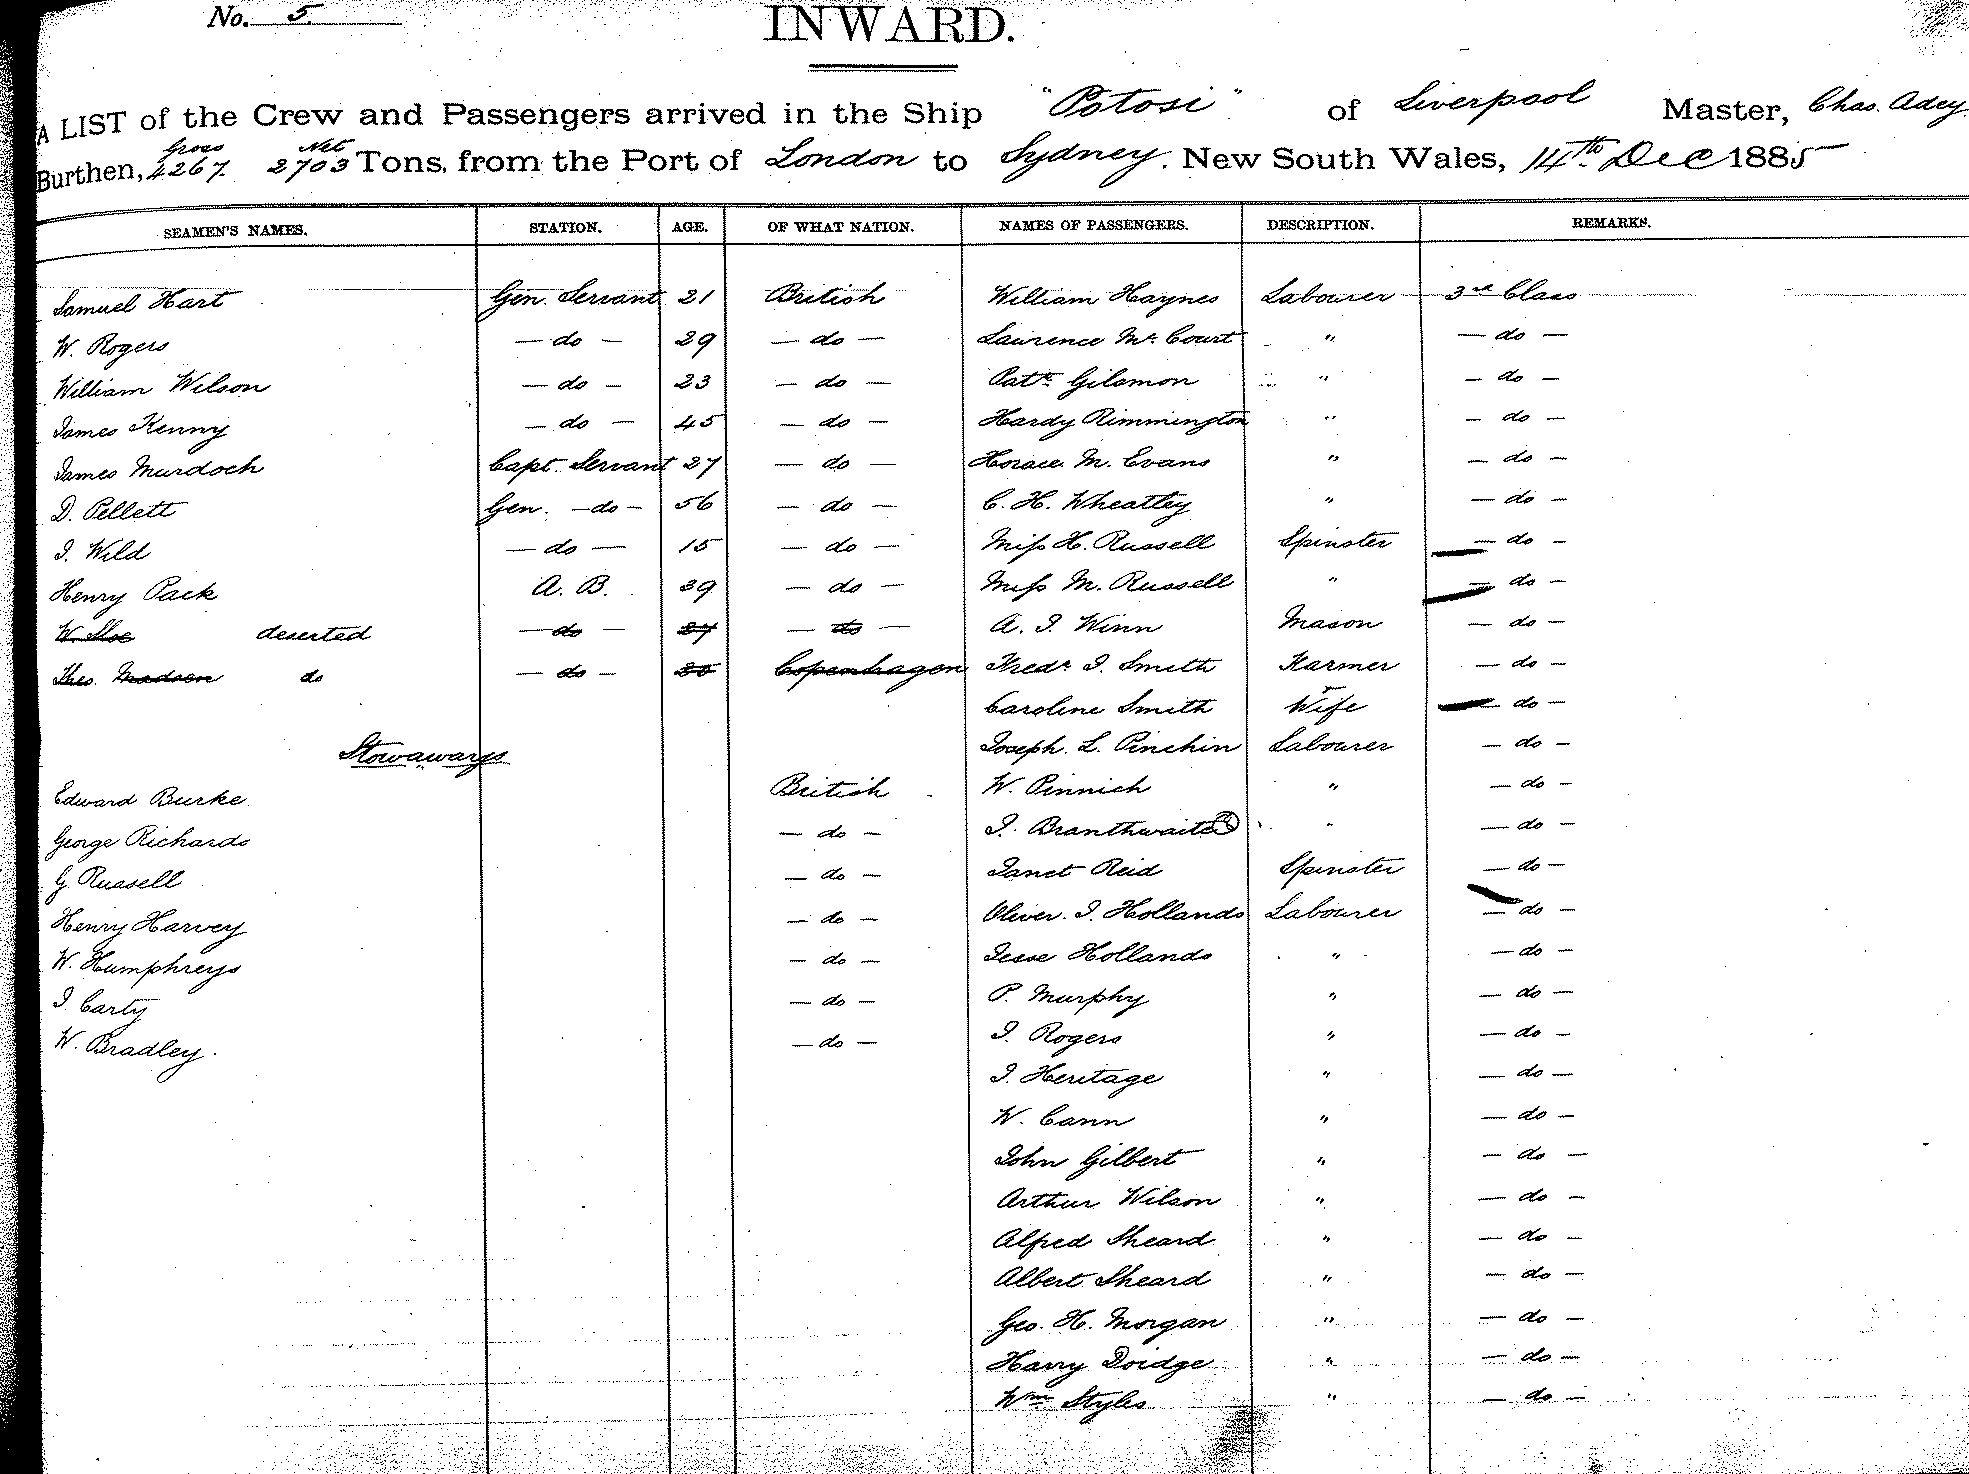 No. 5.
INWARD.
A LIST of the Crew and Passengers arrived in the Ship "Potosi" of Liverpool Master, Chas. Adey
Burthen, Gross 4267 Net 2703 Tons, from the Port of London to Sydney. New South Wales, 14th Dec 1885
SEAMEN'S NAMES. STATION. AGE. OF WHAT NATION. NAMES OF PASSENGERS. DESCRIPTION. REMARKS.
Samuel Hart Gen. Servant 21 British William Haynes Labourer 3rd Class
W. Rogers — do — 29 — do — Laurence Mc. Court " — do —
William Wilson — do — 23 — do — Patk. Gilsmon " — do —
James Kenny — do — 45 — do — Hardy Rimmington " — do —
James Murdoch Capt. Servant 27 — do — Horace M. Evans " — do —
D. Pellett Gen. — do — 56 — do — C. H. Wheatley " — do —
J. Wild — do — 15 — do — Miss H. Russell Spinster — do —
Henry Pack A. B. 39 — do — Miss M. Russell " — do —
W. deserted — do — 27 — do — A. J. Winn Mason — do —
Theo. Madsen do — do — Copenhagen Fredk. J. Smith Farmer — do —
Caroline Smith Wife — do —
Stowaways Joseph. L. Pinchin Labourer — do —
Edward Burke British W. Pinnich " — do —
George Richards — do — J. Branthwaite " — do —
G. Russell — do — Janet Reid Spinster — do —
Henry Harvey — do — Oliver. J. Hollands Labourer — do —
W. Humphreys — do — Jesse Hollands " — do —
J. Carty — do — P. Murphy " — do —
W. Bradley. — do — J. Rogers " — do —
J. Heritage " — do —
W. Cann " — do —
John Gilbert " — do —
Arthur Wilson " — do —
Alfred Sheard " — do —
Albert Sheard " — do —
Geo. H. Morgan " — do —
Harry Doidge " — do —
Wm Styles " — do —